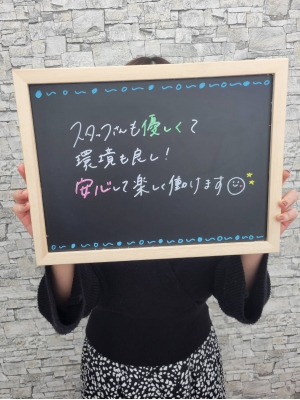 スタッフさんも優しくて
環境も良し!
安心して楽しく働けます